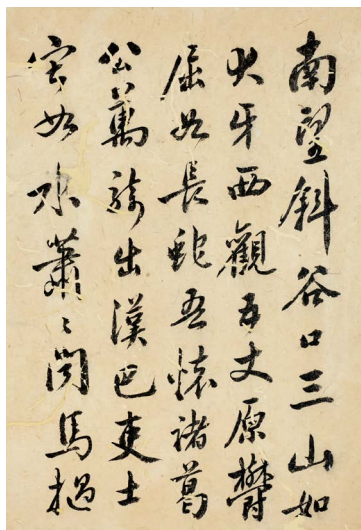 南望斜谷口三山如
犬牙西觀五丈原鬱
屈如長虵吾懷諸葛
公萬騎出漢巴吏士
寂如水蕭〻聞馬檛